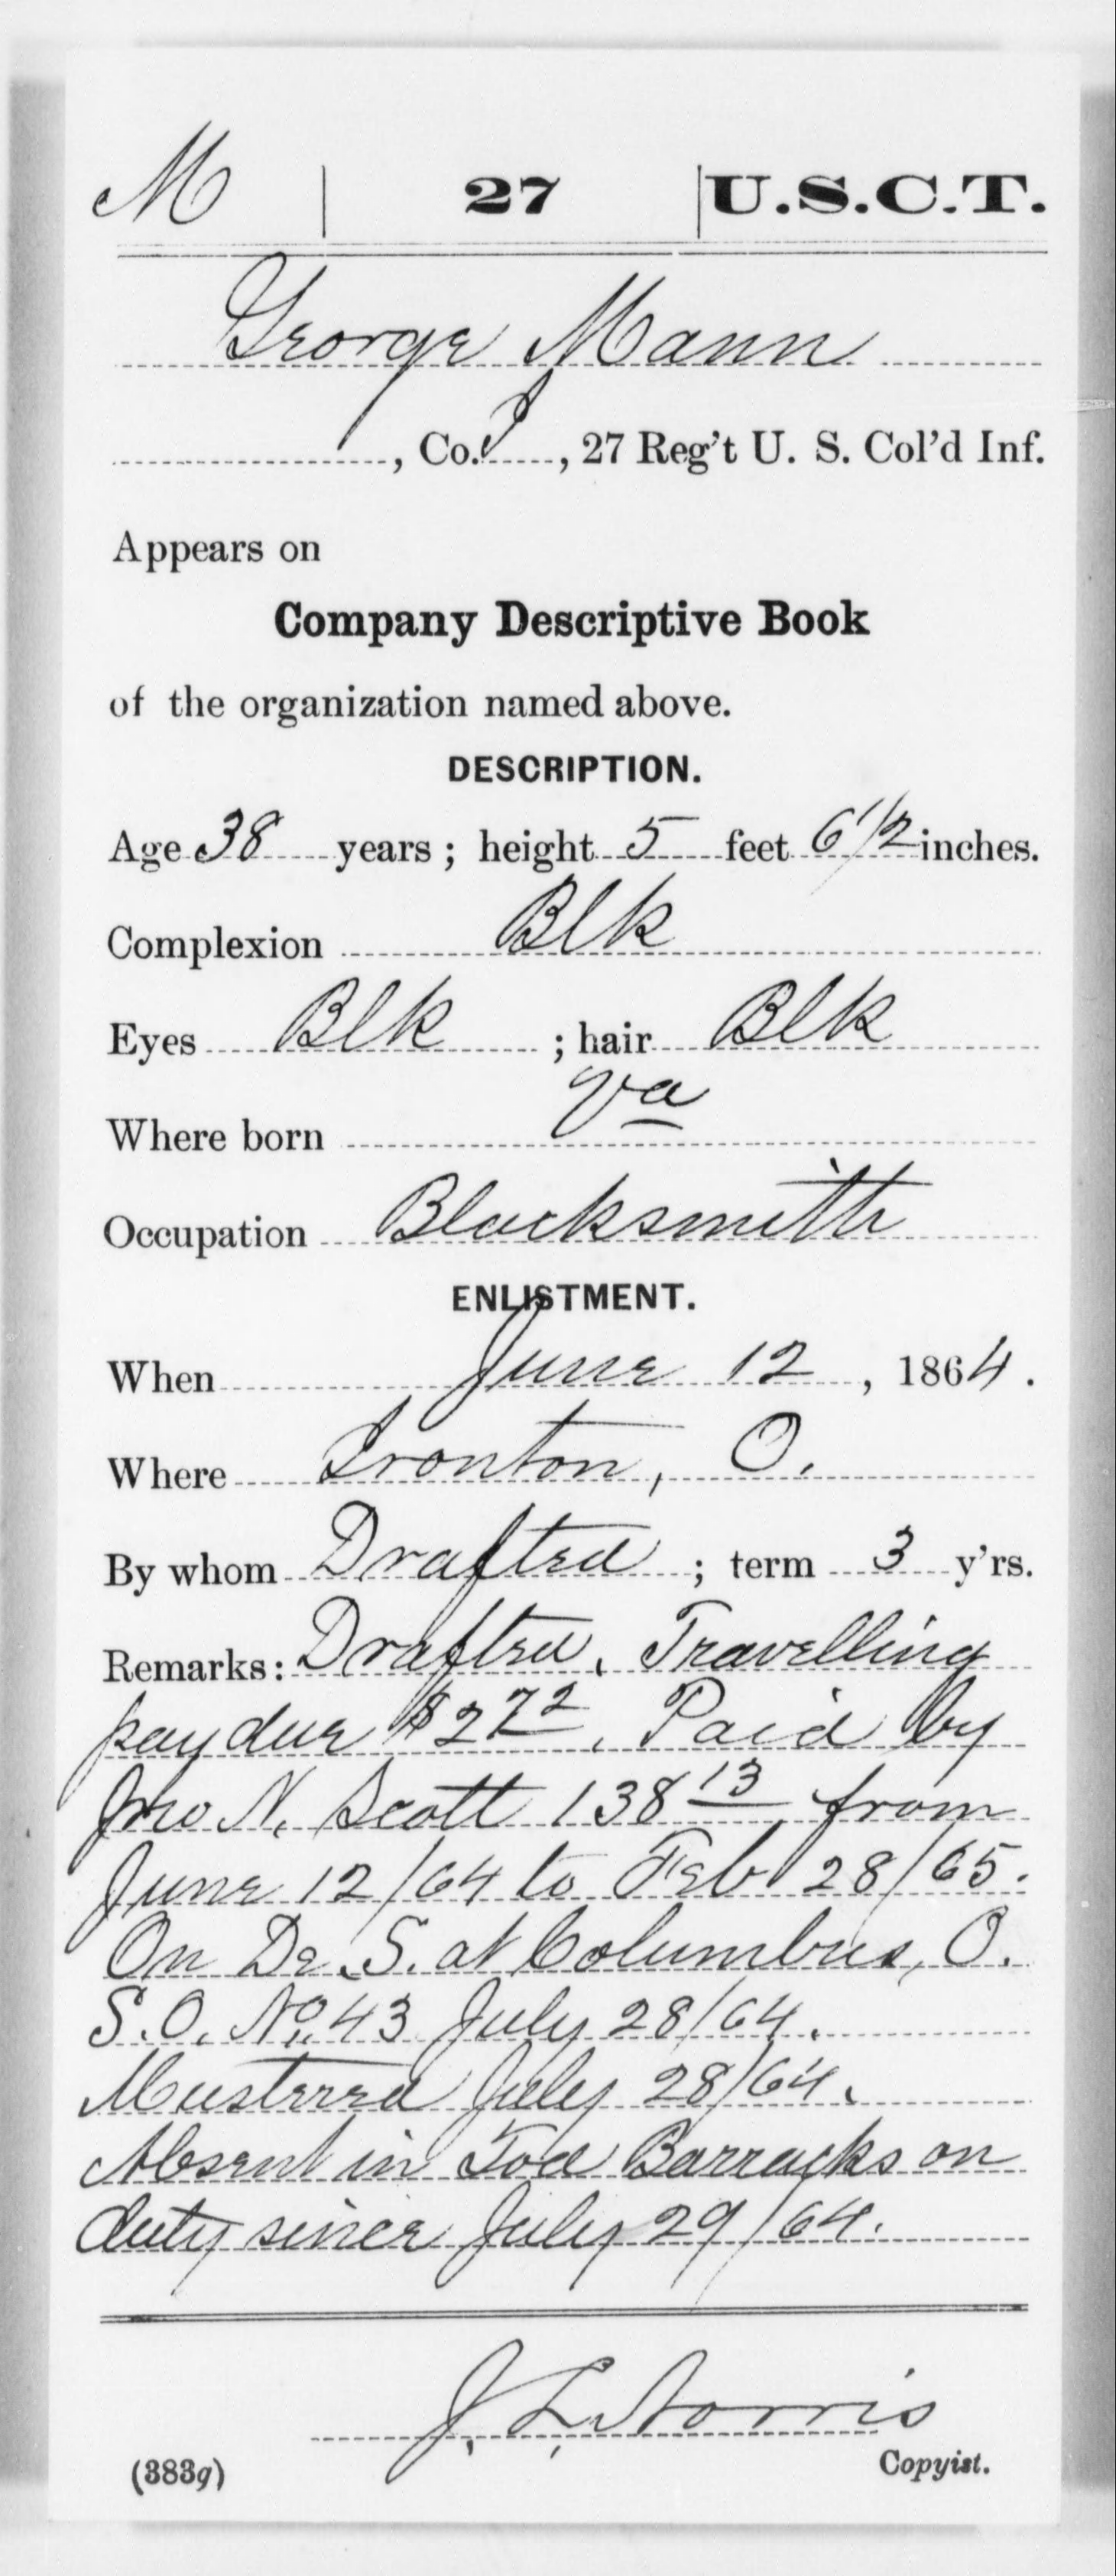 M | 27 | U.S.C.T.
George Mann
, Co. I, 27 Reg't U. S. Col'd Inf.
Appears on
Company Descriptive Book
of the organization named above.
DESCRIPTION.
Age 38 years; height 5 feet 6 1/2 inches.
Complexion Blk
Eyes Blk ; hair Blk
Where born Va
Occupation Blacksmith
ENLISTMENT.
When June 12, 1864.
Where Ironton, O.
By whom Drafted ; term 3 y'rs.
Remarks: Drafted. Travelling
pay due $2 72. Paid by
Jno N. Scott 138 13 from
June 12/64 to Feb 28/65.
On De. S. at Columbus, O.
S.O. No. 43 July 28/64.
Mustered July 28/64.
Absent in Tod Barracks on
duty since July 29/64.
J. L. Norris
(383g) Copyist.